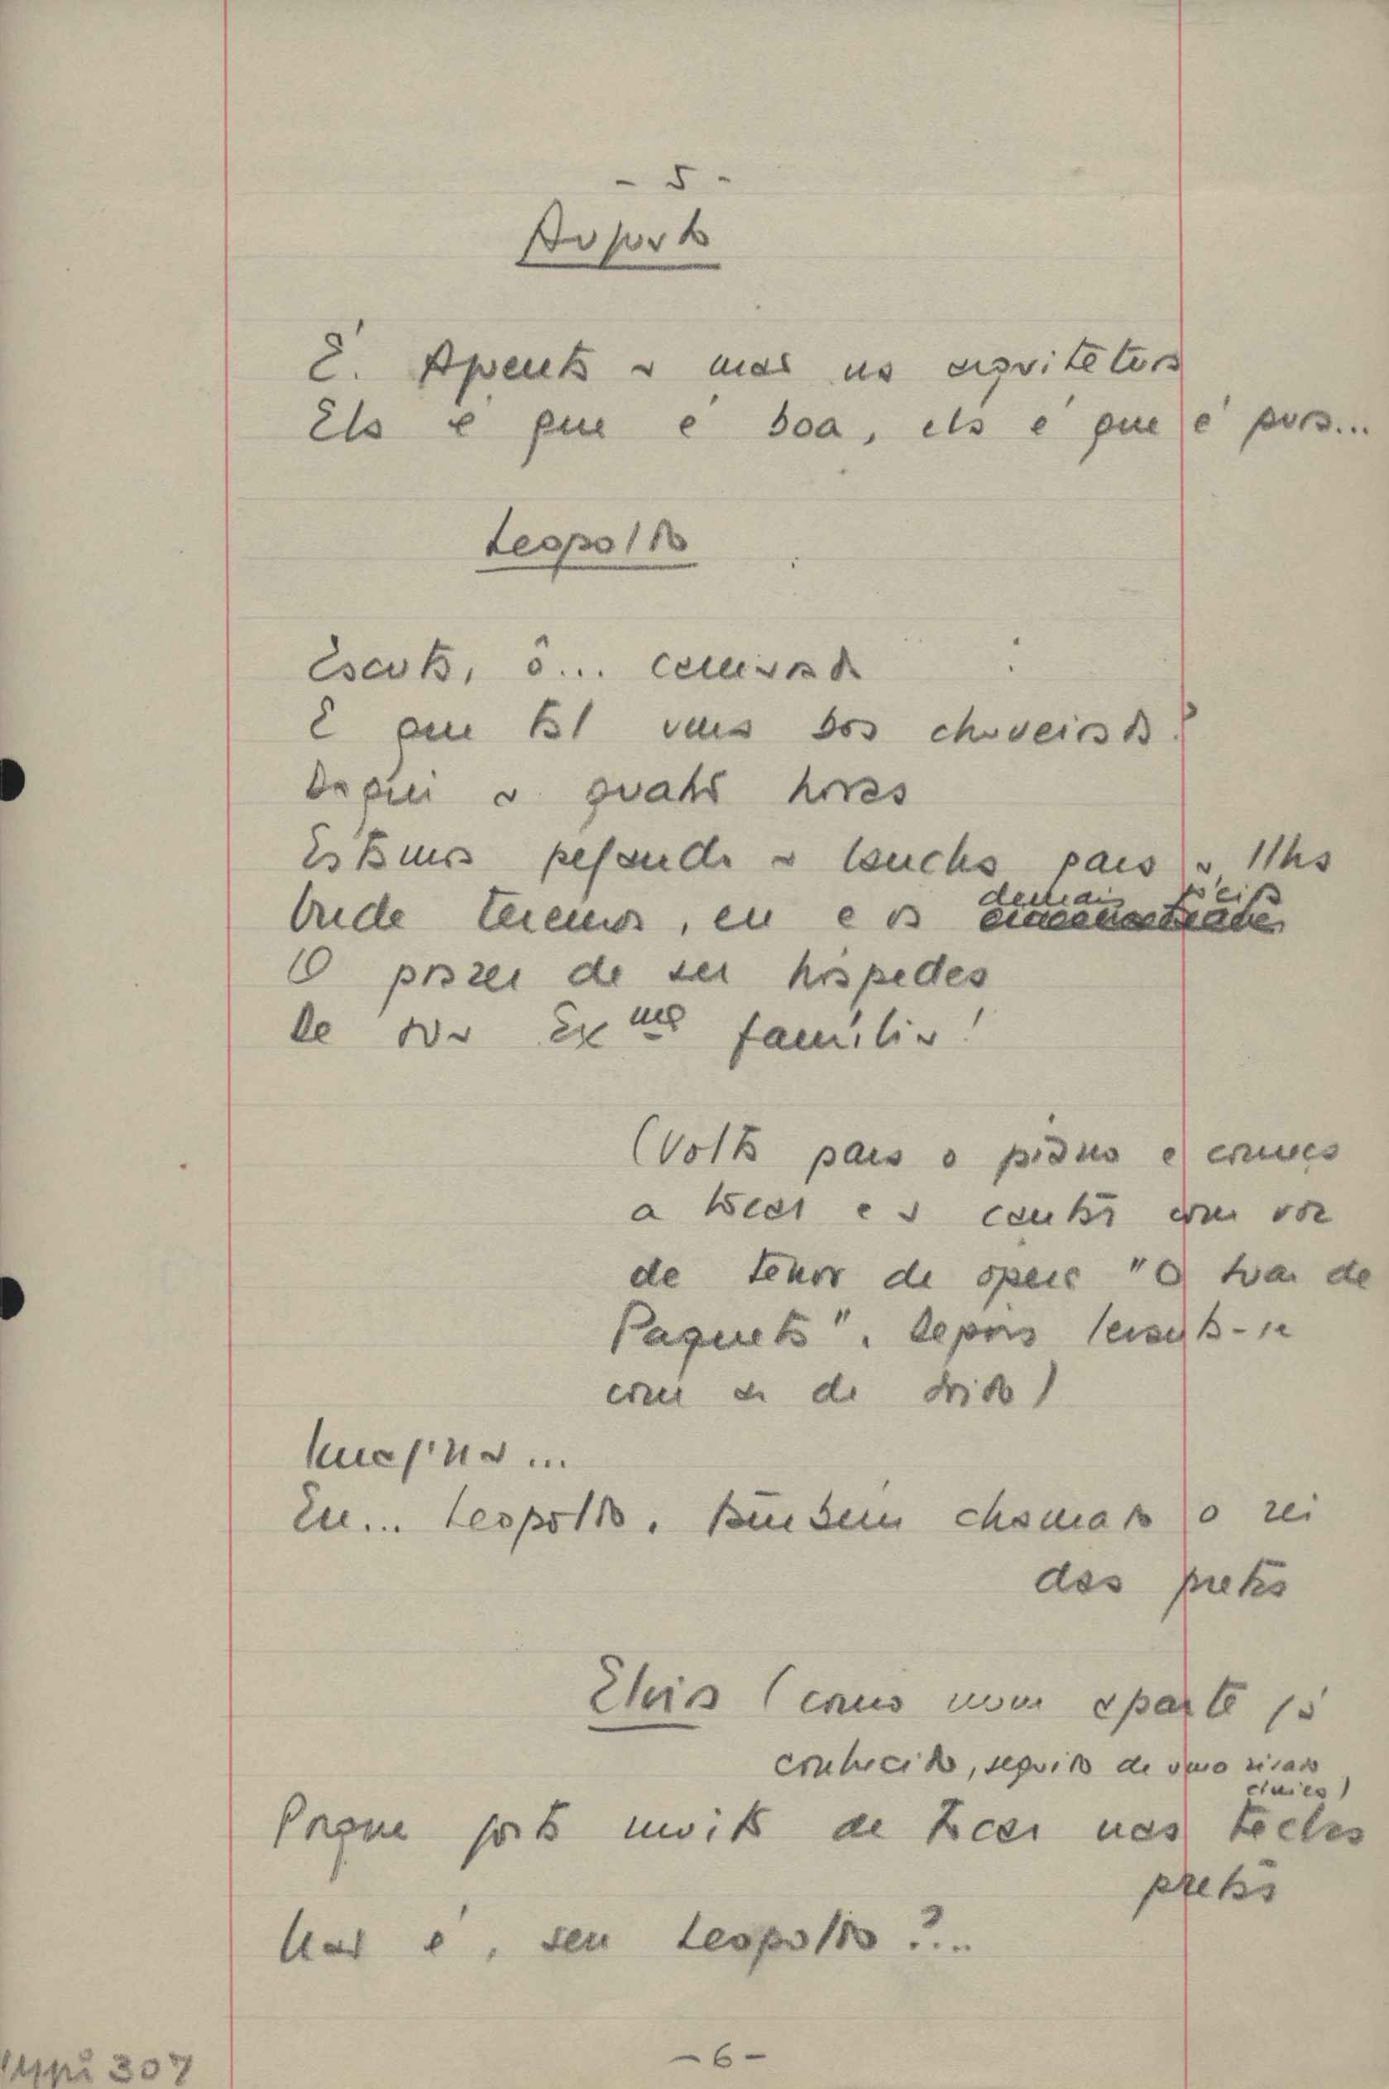 - 5 -
Augusto
É. Aponta a mas na arquitetura
Ela é que é boa, ela é que é pura...
Leopoldo
Escuta, ô... camarada
E que tal vais dos chuveiros?
Daqui a quatro horas
Estamos pegando a lancha para a Ilha
Onde teremos, eu e os demais
O prazer de ser hóspedes
De sua Exma família!
(Volta para o piano e começa
a tocar e a cantar com voz
de tenor de ópera "O luar de
Paquetá". Depois levanta-se
com ar de doido)
Imagina...
Eu... Leopoldo. Também chamado o rei
das pretas
Elvira (como num aparte já
conhecido, seguido de uma risada
cínica)
Porque gosta muito de tocar nas teclas
pretas
Não é, seu Leopoldo?...
- 6 -
307